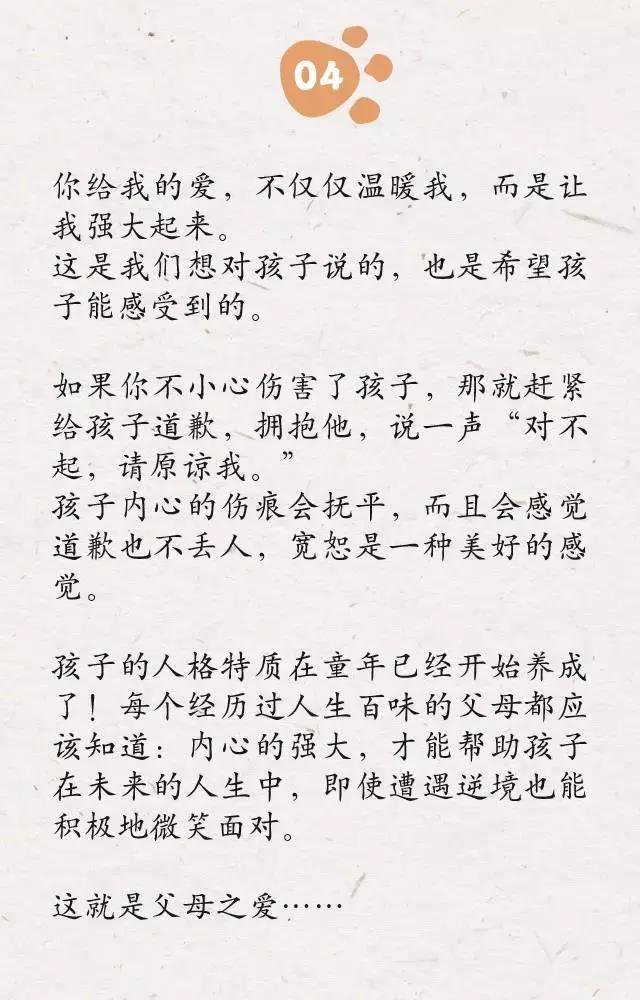 04
你给我的爱，不仅仅温暖我，而是让
我强大起来。
这是我们想对孩子说的，也是希望孩
子能感受到的。
如果你不小心伤害了孩子，那就赶紧
给孩子道歉，拥抱他，说一声“对不
起，请原谅我。”
孩子内心的伤痕会抚平，而且会感觉
道歉也不丢人，宽恕是一种美好的感
觉。
孩子的人格特质在童年已经开始养成
了！每个经历过人生百味的父母都应
该知道：内心的强大，才能帮助孩子
在未来的人生中，即使遭遇逆境也能
积极地微笑面对。
这就是父母之爱……